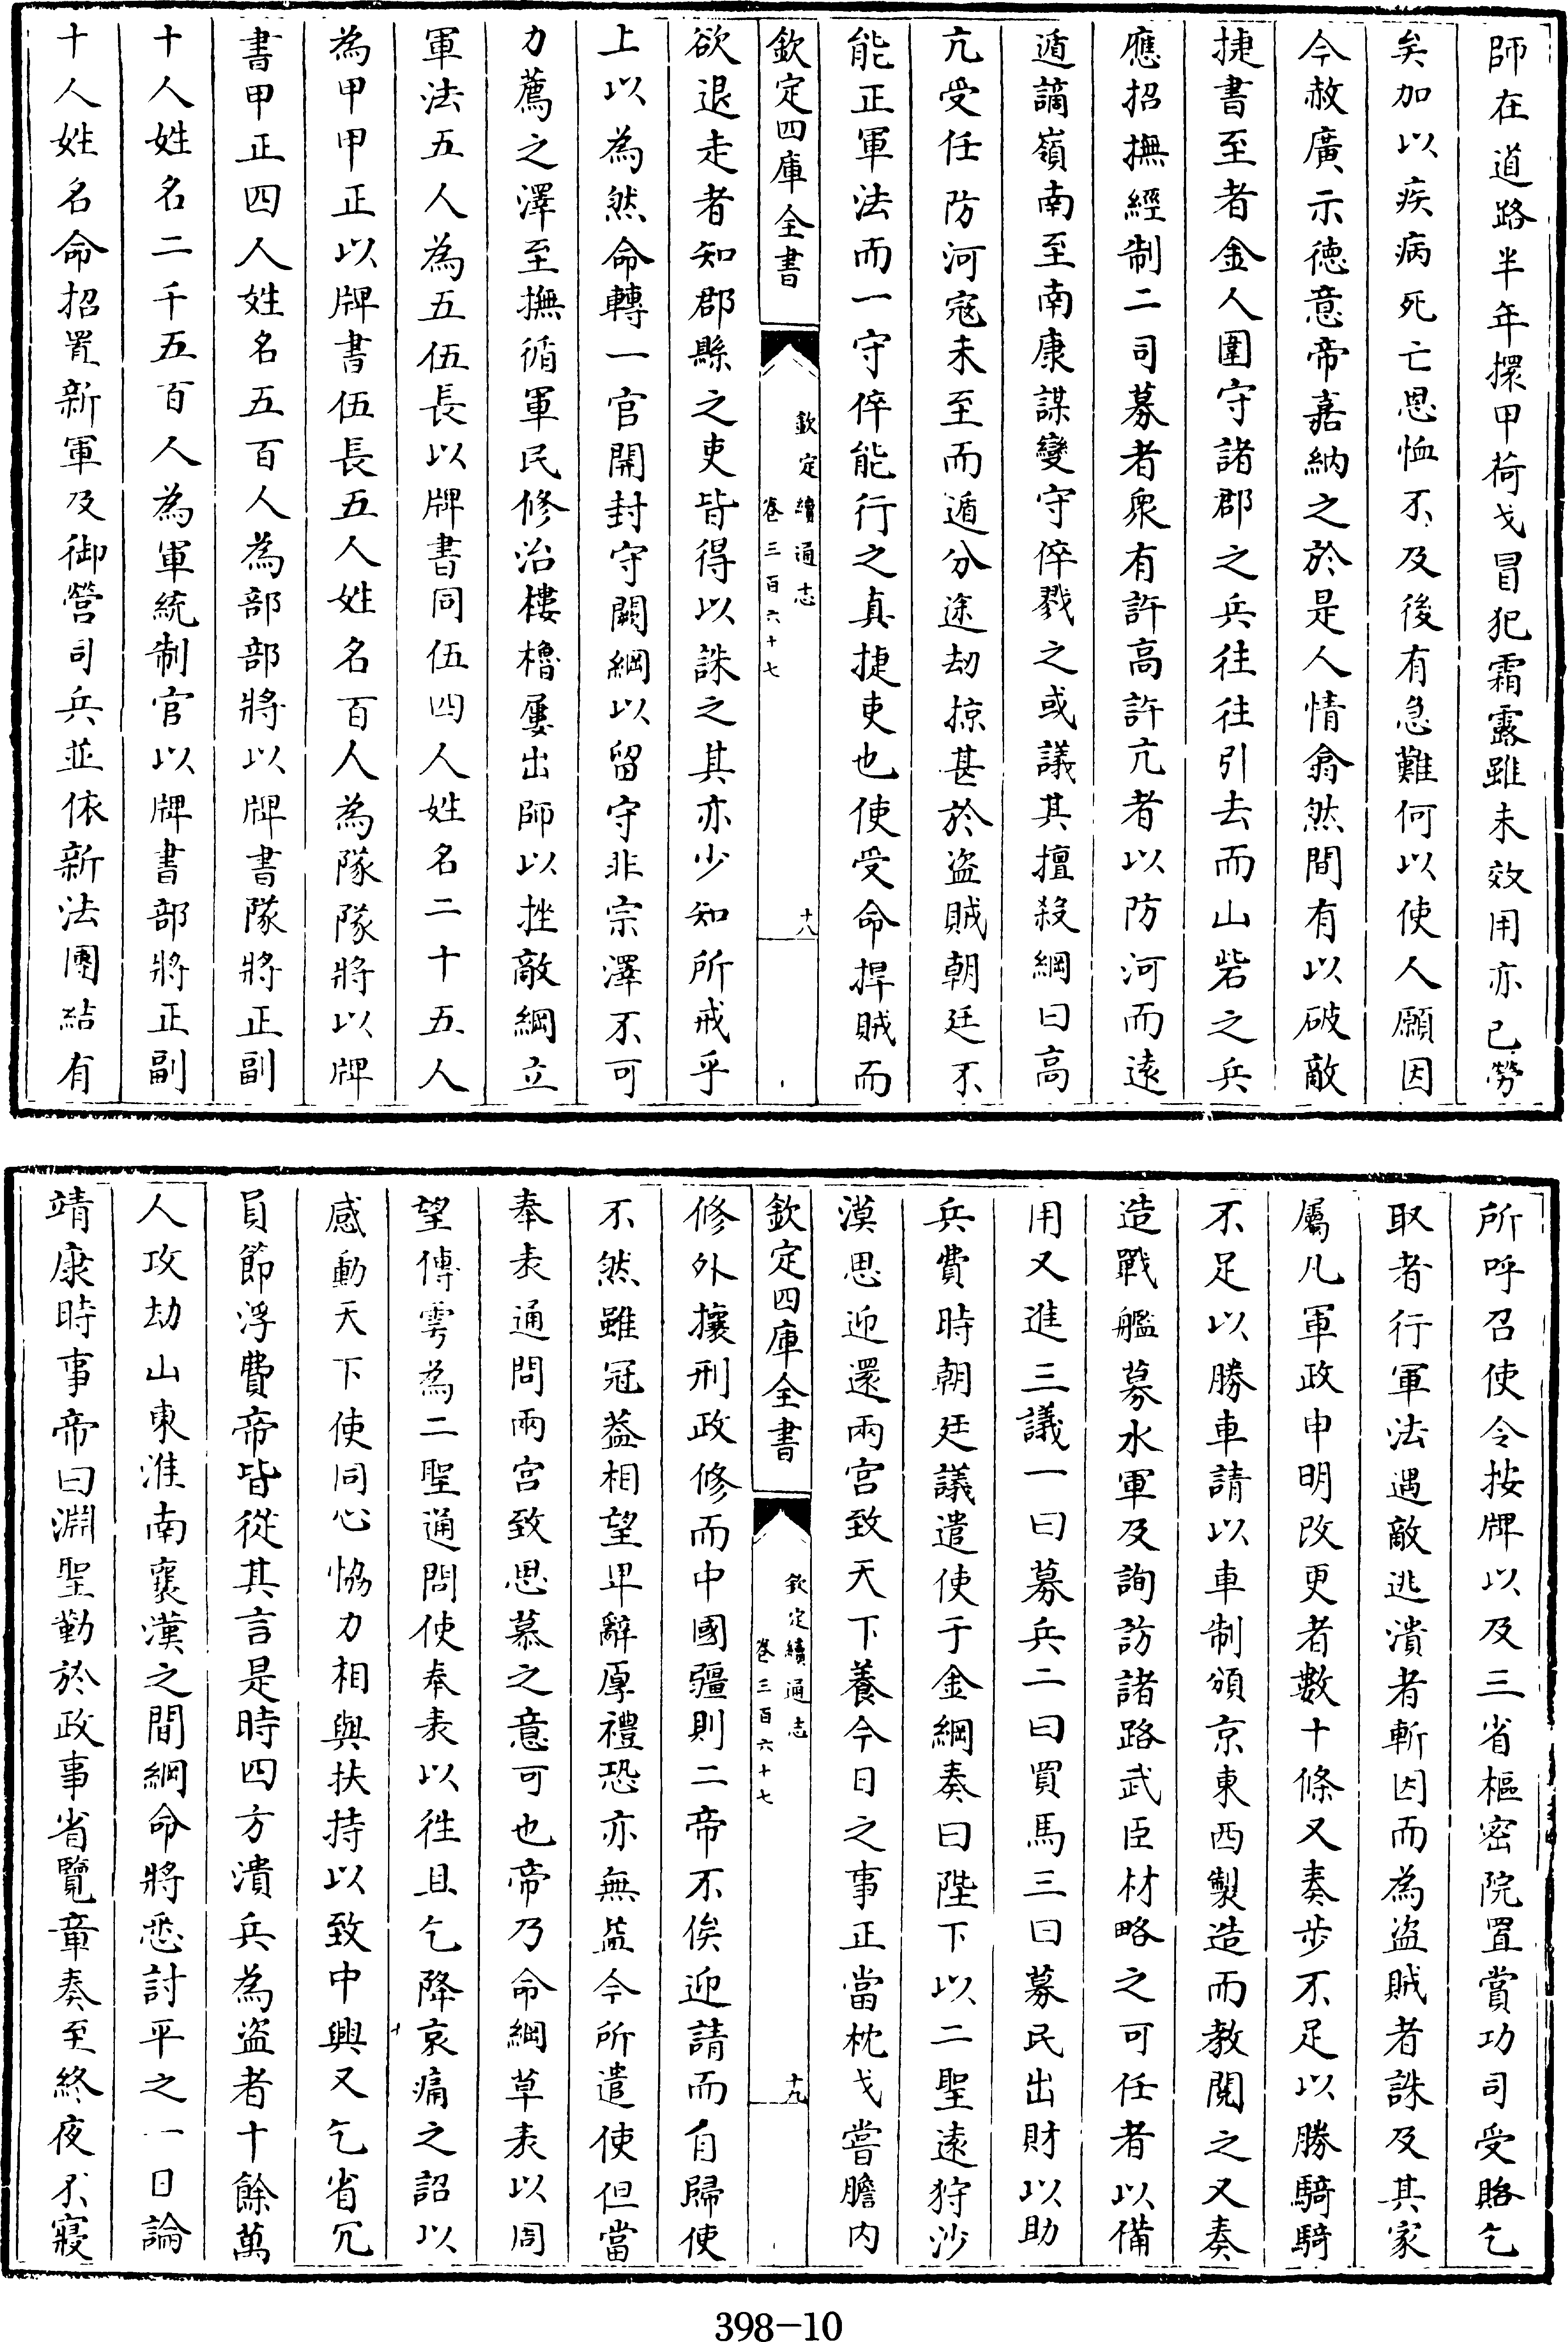 師在道路半年擐甲荷戈冒犯霜露雖未效用亦已勞
矣加以疾病死亡恩恤不及後有急難何以使人願因
今赦廣示徳意帝嘉納之於是人情翕然間有以破敵
捷書至者金人圍守諸郡之兵往往引去而山砦之兵
應招撫經制二司募者衆有許高許亢者以防河而遠
遁謫嶺南至南康謀變守倅戮之或議其擅殺綱曰高
亢受任防河寇未至而遁分途劫掠甚於盜賊朝廷不
能正軍法而一守倅能行之真捷吏也使受命捍賊而
欽定四庫全書
欽定續通志
卷三百六十七
十八
欲退走者知郡縣之吏皆得以誅之其亦少知所戒乎
上以為然命轉一官開封守闕綱以留守非宗澤不可
力薦之澤至撫循軍民修治樓櫓屢出師以挫敵綱立
軍法五人為五伍長以牌書同伍四人姓名二十五人
為甲甲正以牌書伍長五人姓名百人為隊隊將以牌
書甲正四人姓名五百人為部部將以牌書隊將正副
十人姓名二千五百人為軍統制官以牌書部將正副
十人姓名命招置新軍及御營司兵並依新法團結有
所呼召使令按牌以及三省樞密院置賞功司受賂乞
取者行軍法遇敵逃潰者斬因而為盜賊者誅及其家
屬凡軍政申明改更者數十條又奏步不足以勝騎騎
不足以勝車請以車制頒京東西製造而教閱之又奏
造戰艦募水軍及詢訪諸路武臣材略之可任者以備
用又進三議一曰募兵二曰買馬三曰募民出財以助
兵費時朝廷議遣使于金綱奏曰陛下以二聖遠狩沙
漠思迎還兩宮致天下養今日之事正當枕戈嘗膽内
欽定四庫全書
欽定續通志
卷三百六十七
十九
修外攘刑政修而中國彊則二帝不俟迎請而自歸使
不然雖冠葢相望卑辭厚禮恐亦無益今所遣使但當
奉表通問兩宮致思慕之意可也帝乃命綱草表以周
望傅雱為二聖通問使奉表以徃且乞降哀痛之詔以
感動天下使同心恊力相與扶持以致中興又乞省冗
員節浮費帝皆從其言是時四方潰兵為盜者十餘萬
人攻劫山東淮南襄漢之間綱命將悉討平之一日論
靖康時事帝曰淵聖勤於政事省覽章奏至終夜不寢
398-10